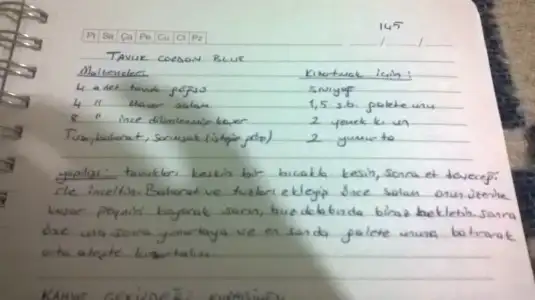 145
Pt Sa Ça Pe Cu Ct Pz
/ /
TAVUK CORDON BLUE
Malzemeler: Kızartmak için:
4 adet tavuk göğsü sıvıyağ
4 " Macar salam 1,5 s.b. galete unu
8 " ince dilimlenmiş kaşar 2 yemek k. un
Tuz, baharat, sarımsak 2 yumurta
yapılışı: tavukları keskin bir bıçakla kesin, sonra et döveceği
ile inceltin. Baharat ve tuzları ekleyip önce salam onun üzerine
kaşar peyniri koyarak sarın, buzdolabında biraz bekletin. Sonra
önce una sonra yumurtaya ve en sonda galete ununa batırarak
orta ateşte kızartalım.
KAHVE